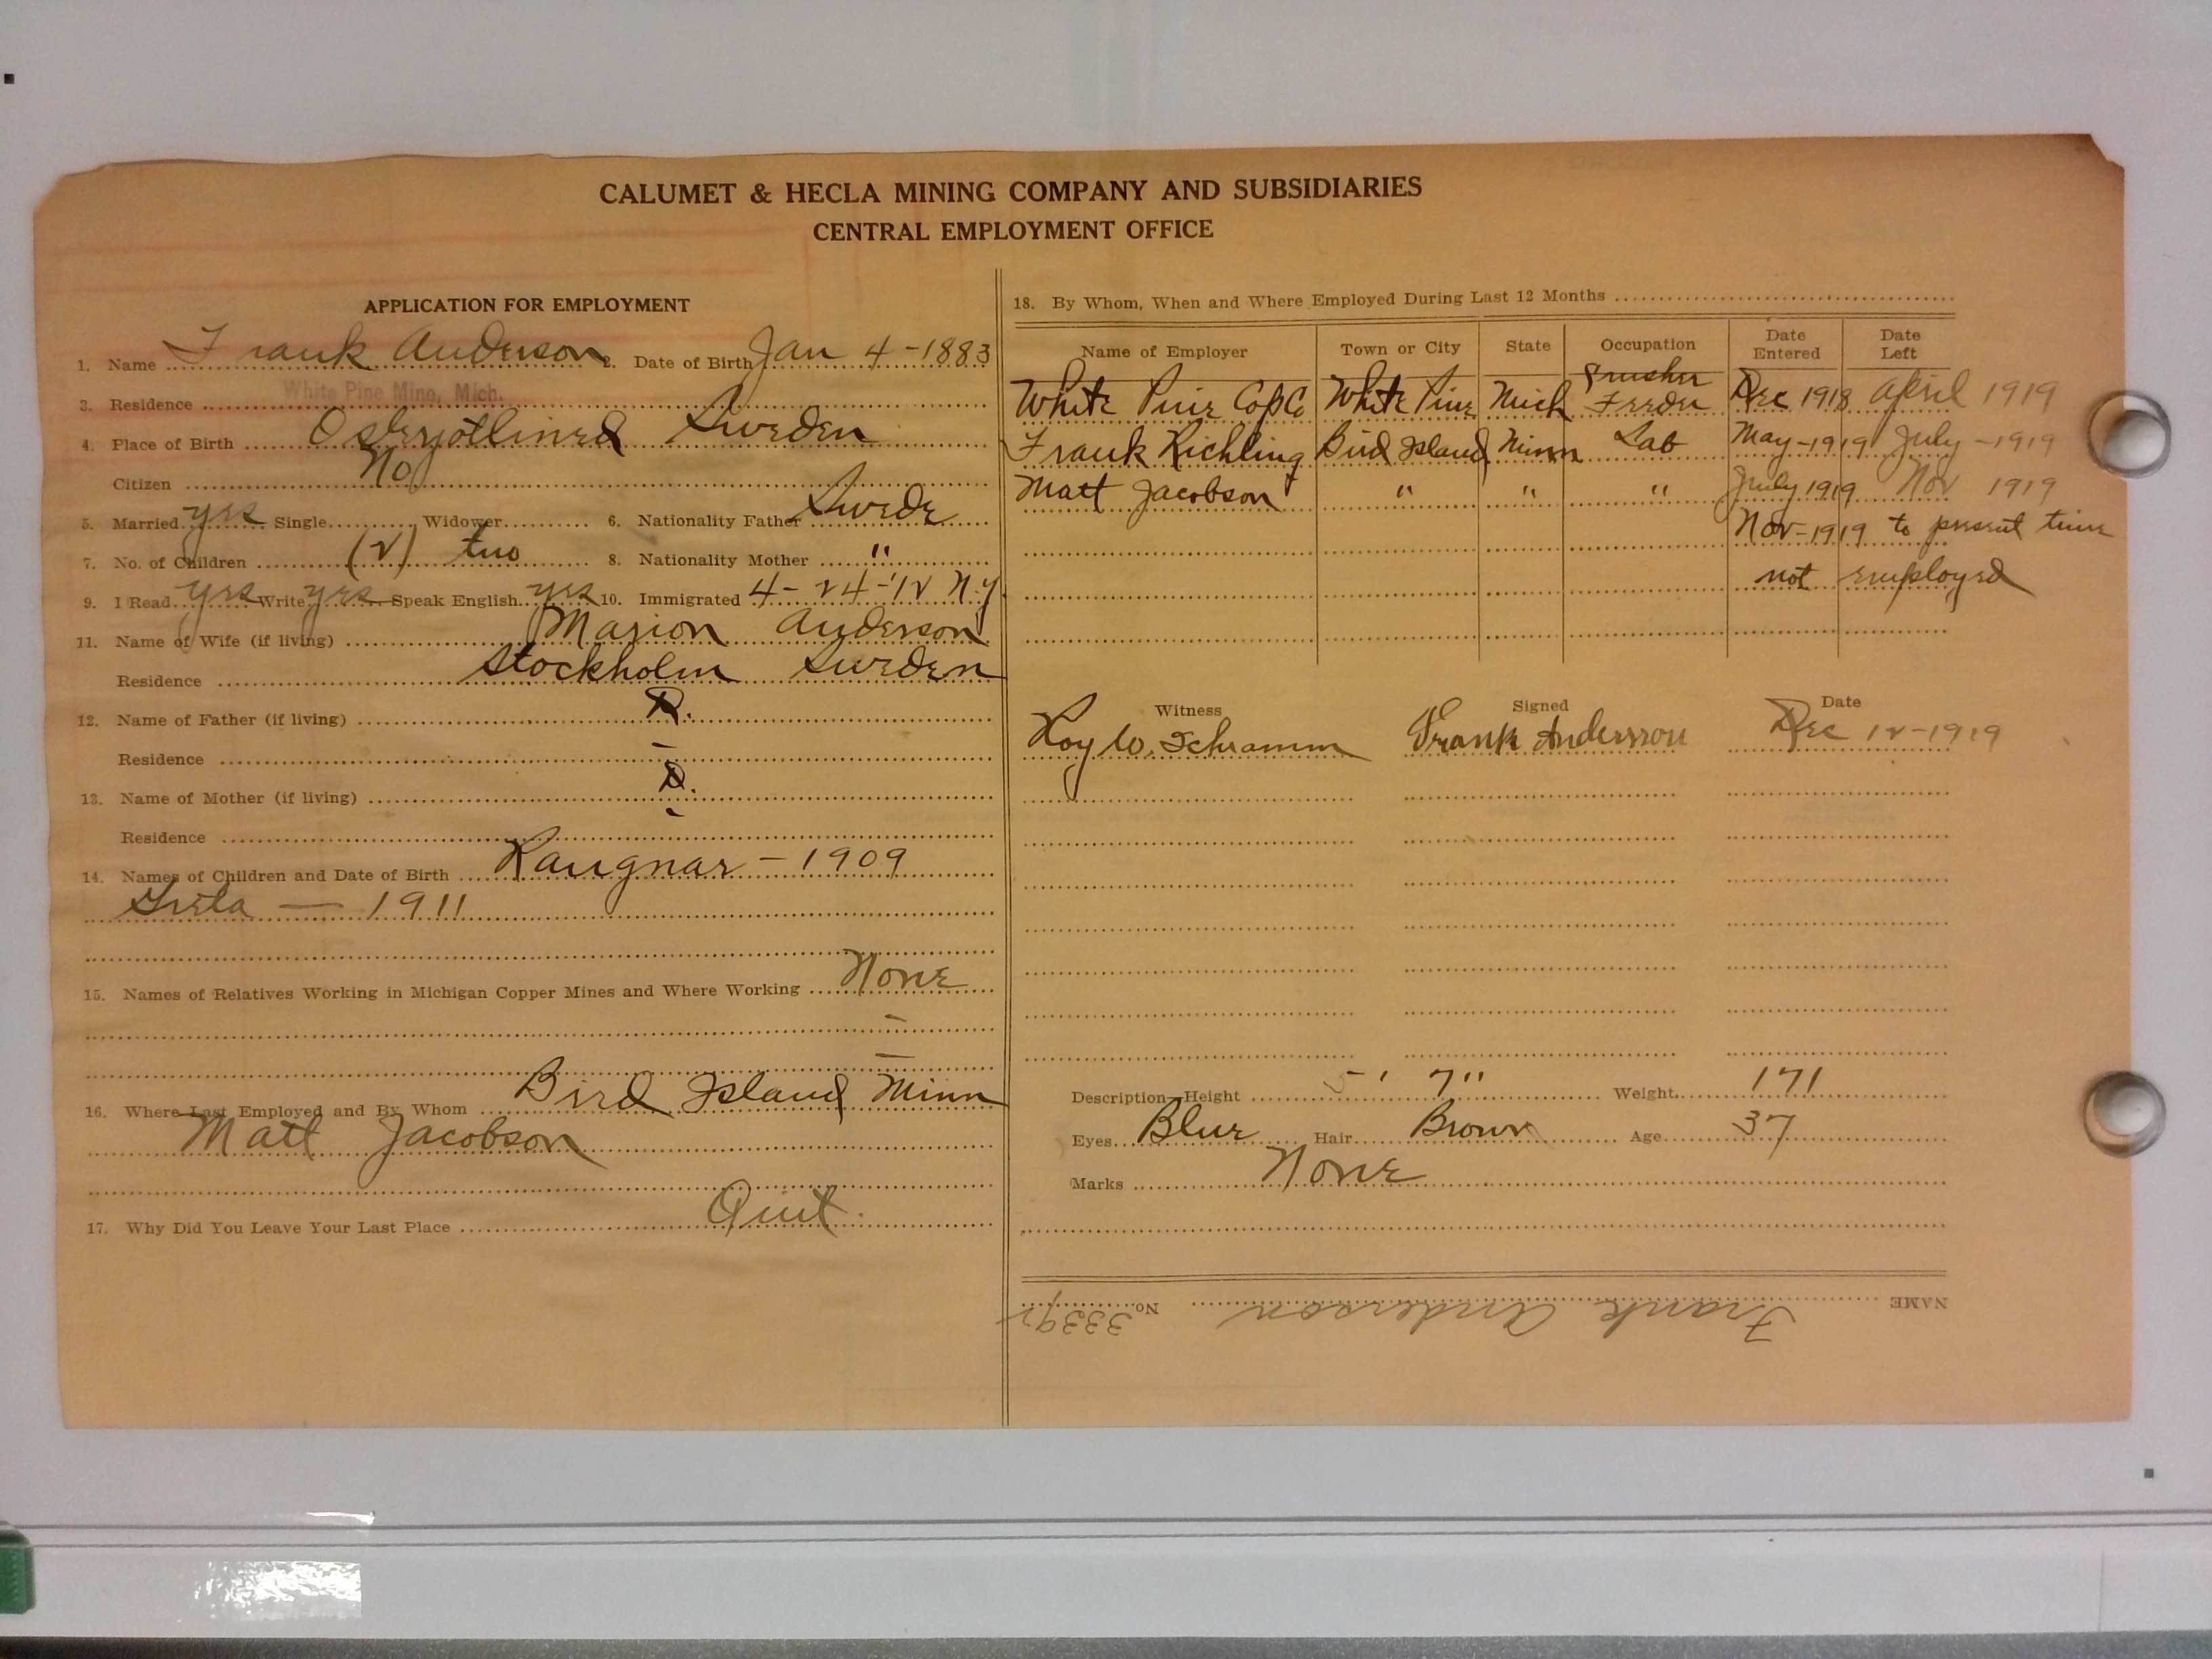 CALUMET & HECLA MINING COMPANY AND SUBSIDIARIES
CENTRAL EMPLOYMENT OFFICE
APPLICATION FOR EMPLOYMENT
1. Name Frank Anderson 2. Date of Birth Jan 4-1883
3. Residence White Pine Mine, Mich.
4. Place of Birth Sweden
Citizen No
5. Married yes Single Widower 6. Nationality Father Swede
7. No. of Children (2) two 8. Nationality Mother "
9. I Read yes Write yes Speak English yes 10. Immigrated 4-24-'12 N.Y.
11. Name of Wife (if living) Marion Anderson
Residence Stockholm Sweden
12. Name of Father (if living) D.
Residence –
13. Name of Mother (if living) D.
Residence –
14. Names of Children and Date of Birth Raugnar – 1909
Greta — 1911
15. Names of Relatives Working in Michigan Copper Mines and Where Working None
–
–
16. Where Last Employed and By Whom Bird Island Minn
Matt Jacobson
17. Why Did You Leave Your Last Place Quit
18. By Whom, When and Where Employed During Last 12 Months
Name of Employer Town or City State Occupation Date Entered Date Left
White Pine Cop Co White Pine Mich Crusher Feeder Dec 1918 April 1919
Frank Richling Bird Island Minn Lab May-1919 July-1919
Matt Jacobson " " " July 1919 Nov 1919
Nov-1919 to present time
not employed
Witness Signed Date
Roy W. Schramm Frank Andersson Dec 12-1919
Description—Height 5' 7" Weight 171
Eyes Blue Hair Brown Age 37
Marks None
NAME Frank Anderson No. 33392